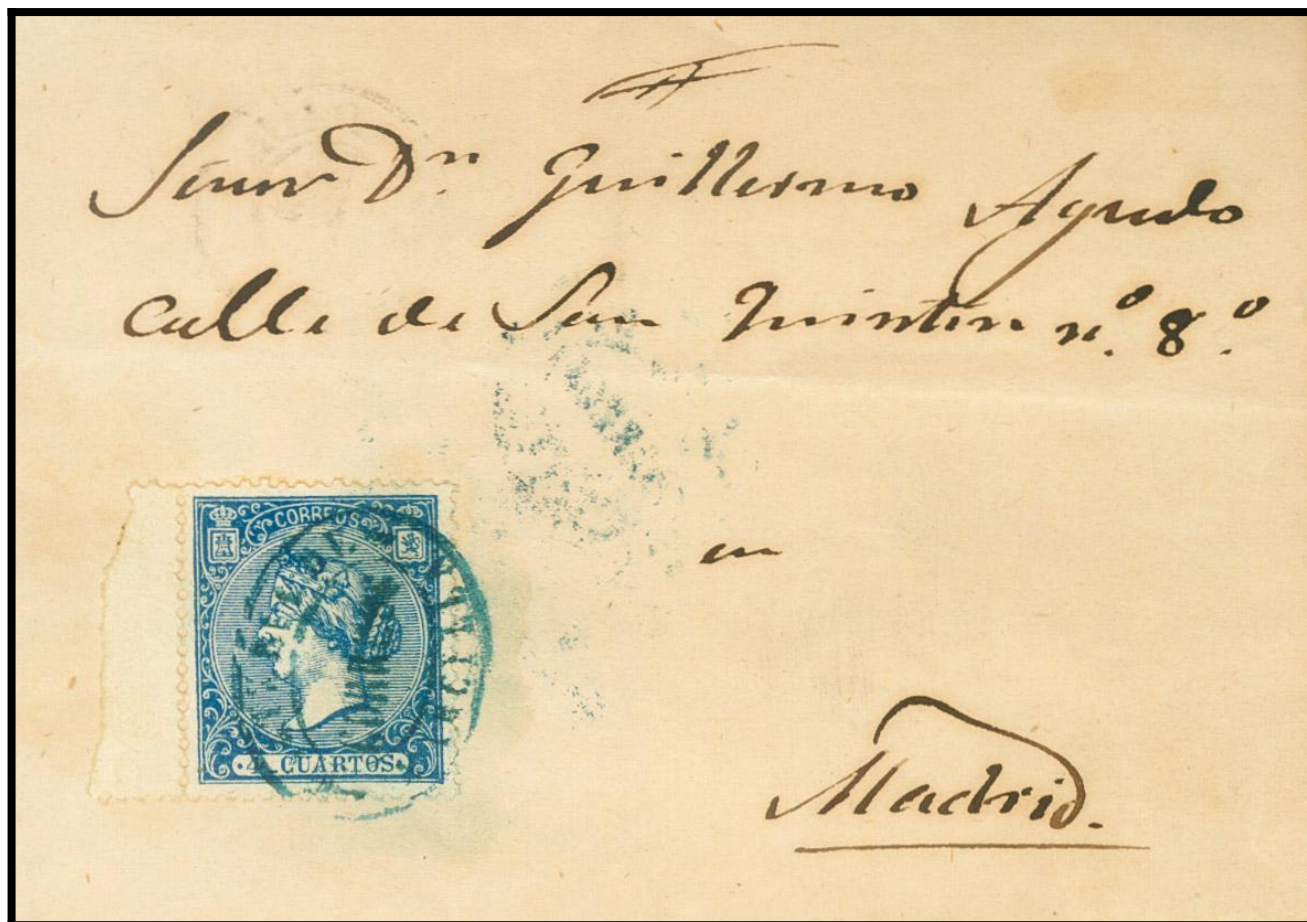 Señor Dn Guillermo Agudo
calle de San Quintin nº. 8.º
en
Madrid.
CORREOS
4 CUARTOS